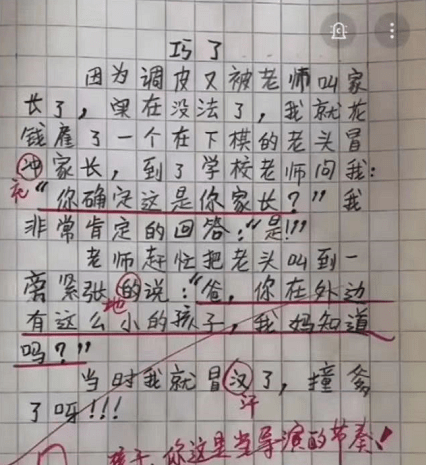 巧了
因为调皮又被老师叫家
长了，实在没法了，我就花
钱雇了一个在下棋的老头冒
冲家长，到了学校老师问我：
充
“你确定这是你家长？”我
非常肯定的回答：“是！！”
老师赶忙把老头叫到一
离紧张的说：“爸，你在外边
地
有这么小的孩子，我妈知道
吗？”
当时我就冒汉了，撞爹
汗
了呀！！！
孩子，你这是当导演的节奏！